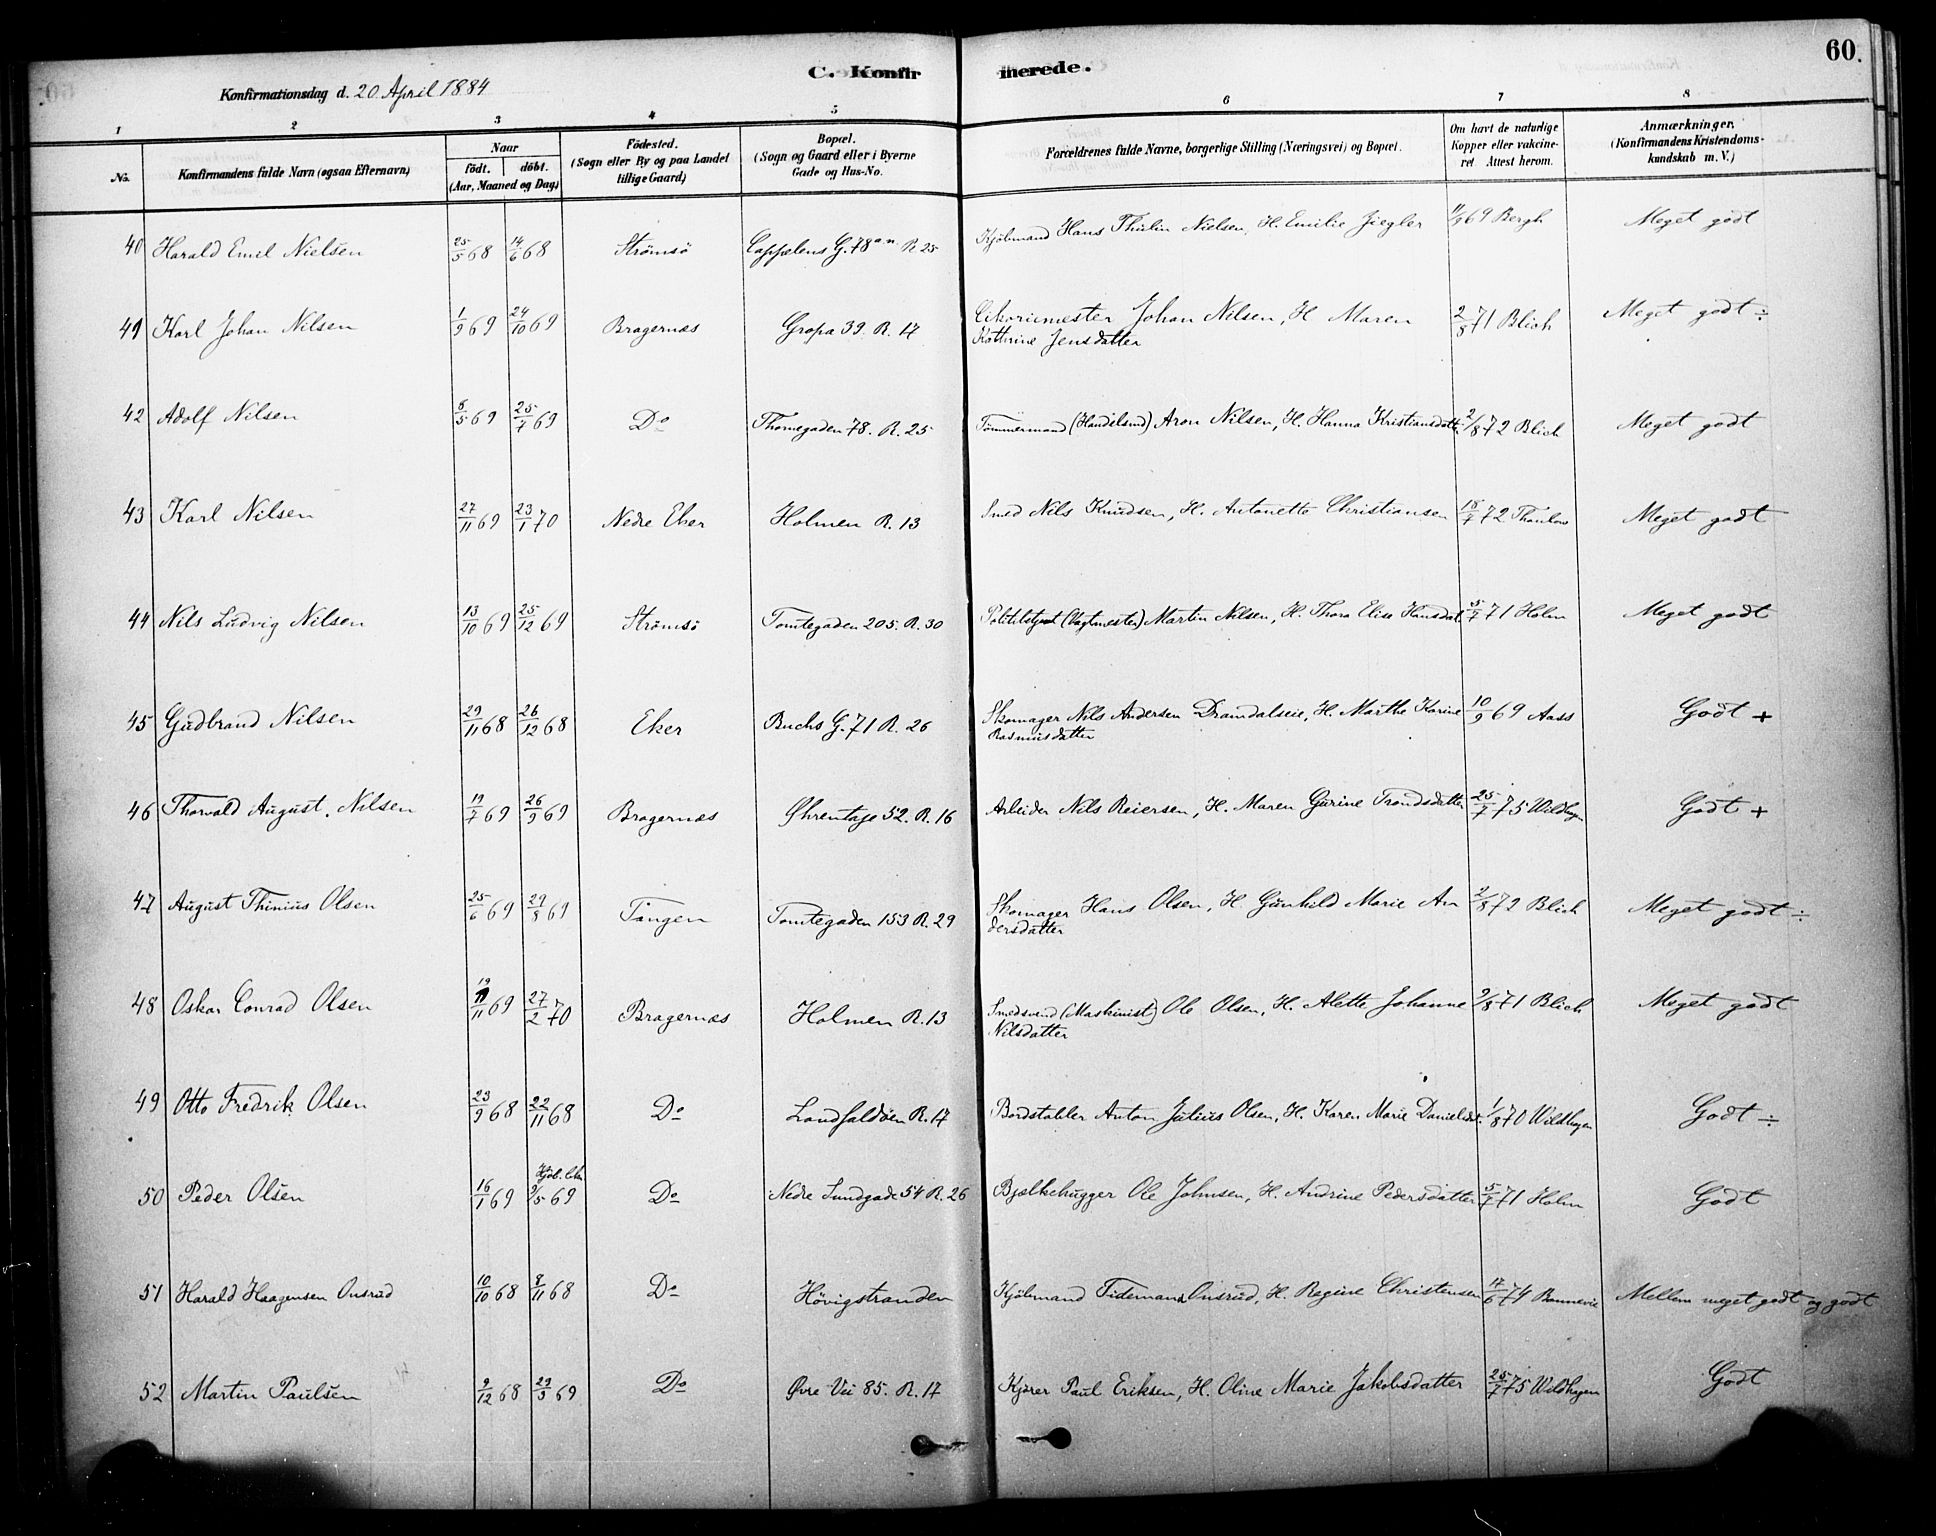 60.
C. Konfirmerede.
Konfirmationsdag d. 20 April 1884
1 2 3 4 5 6 7 8
No. Konfirmandens fulde Navn (ogsaa Efternavn) Naar födt. döbt. (Aar, Maaned og Dag) Födested. (Sogn eller By og paa Landet tillige Gaard) Bopæl. (Sogn og Gaard eller i Byerne Gade og Hus-No. Forældrenes fulde Navne, borgerlige Stilling (Næringsvei) og Bopæl. Om havt de naturlige Kopper eller vakcineret. Attest herom. Anmærkninger. (Konfirmandens Kristendomskundskab m. V.)
40 Harald Emil Nielsen 25/5 68 14/6 68 Strömsö Cappelens G. 78 R. 25 Kjöbmand Hans Thulin Nielsen, H. Emilie Ziegler 11/9 69 Bergh Meget godt
41 Karl Johan Nilsen 1/9 69 24/10 69 Bragernæs Gropa 39. R. 17 Cikoriemester Johan Nilsen, H. Maren
Kathrine Jensdatter 2/8 71 Blich Meget godt ÷
42 Adolf Nilsen 8/5 69 25/7 69 Do Thornegaden 78. R. 25 Tömmermand (Handelsmd) Aron Nilsen, H. Hanna Kristiansdatt. 2/8 72 Blich Meget godt
43 Karl Nilsen 27/11 69 23/1 70 Nedre Eker Holmen R. 13 Smed Nils Knudsen, H. Antonette Christiansen 18/7 72 Thaulow Meget godt
44 Nils Ludvig Nilsen 13/10 69 25/12 69 Strömsö Tomtegaden 205. R. 30 (Vagtmester) Martin Nilsen, H. Thora Elise Hansdat. 5/7 71 Holm Meget godt
45 Gudbrand Nilsen 29/11 68 26/12 68 Eker Buchs G. 71 R. 26 Skomager Nils Andersen Dramdalseie, H. Marthe Karine
Rasmusdatter 10/9 69 Aass Godt +
46 Thorvald August. Nilsen 19/7 69 26/9 69 Bragernæs Öhrentage 52. R. 16 Arbeider Nils Reiersen, H. Maren Gurine Trondsdatter 25/7 75 Wildhagen Godt +
47 August Thinius Olsen 25/6 69 29/8 69 Tangen Tomtegaden 153 R. 29 Skomager Hans Olsen, H. Gunhild Marie An
dersdatter 2/8 72 Blich Meget godt ÷
48 Oskar Conrad Olsen 19/11 69 27/2 70 Bragernæs Holmen R. 13 Smedsvend (Maskinist) Ole Olsen, H. Alette Johanne
Nilsdatter 2/8 71 Blich Meget godt
49 Otto Fredrik Olsen 23/9 68 22/11 68 Do Landfaldöen R. 17 Bordstabler Anton Julius Olsen, H. Karen Marie Danielsdt. 1/8 70 Wildhagen Godt ÷
50 Peder Olsen 16/1 69 2/5 69 Do Nedre Lundgade 54 R. 26 Bjælkehugger Ole Johnsen, H. Andrine Pedersdatter 5/7 71 Holm Godt
51 Harald Haagensen Onsrud 10/10 68 8/11 68 Do Hövigstranden Kjöbmand Tidemand Onsrud, H. Regine Christensen 17/6 74 Bonnevie Mellem meget godt og godt
52 Martin Paulsen 9/12 68 29/3 69 Do Övre Vei 85. R. 17 Kjörer Paul Eriksen, H. Oline Marie Jakobsdatter 25/7 75 Wildhagen Godt